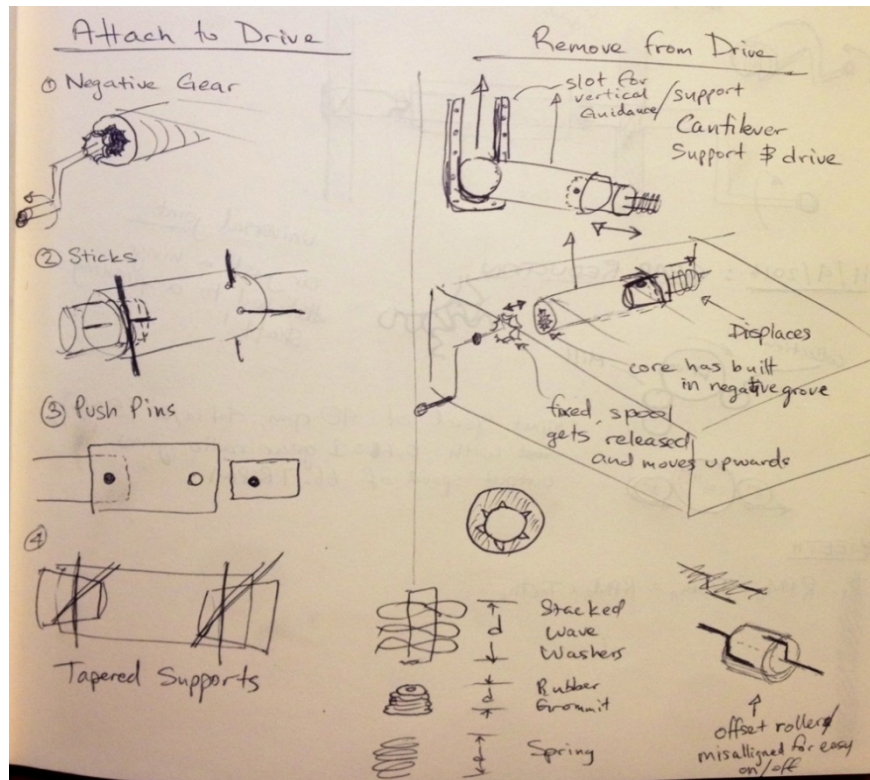 Attach to Drive
① Negative Gear
② Sticks
③ Push Pins
④
Tapered Supports
Remove from Drive
slot for
vertical
Guidance/support
Cantilever
Support & drive
Displaces
core has built
in negative grove
fixed, spool
gets released
and moves upwards
d
Stacked
Wave
Washers
d
Rubber
Grommit
d
Spring
offset roller
misalligned for easy
on/off